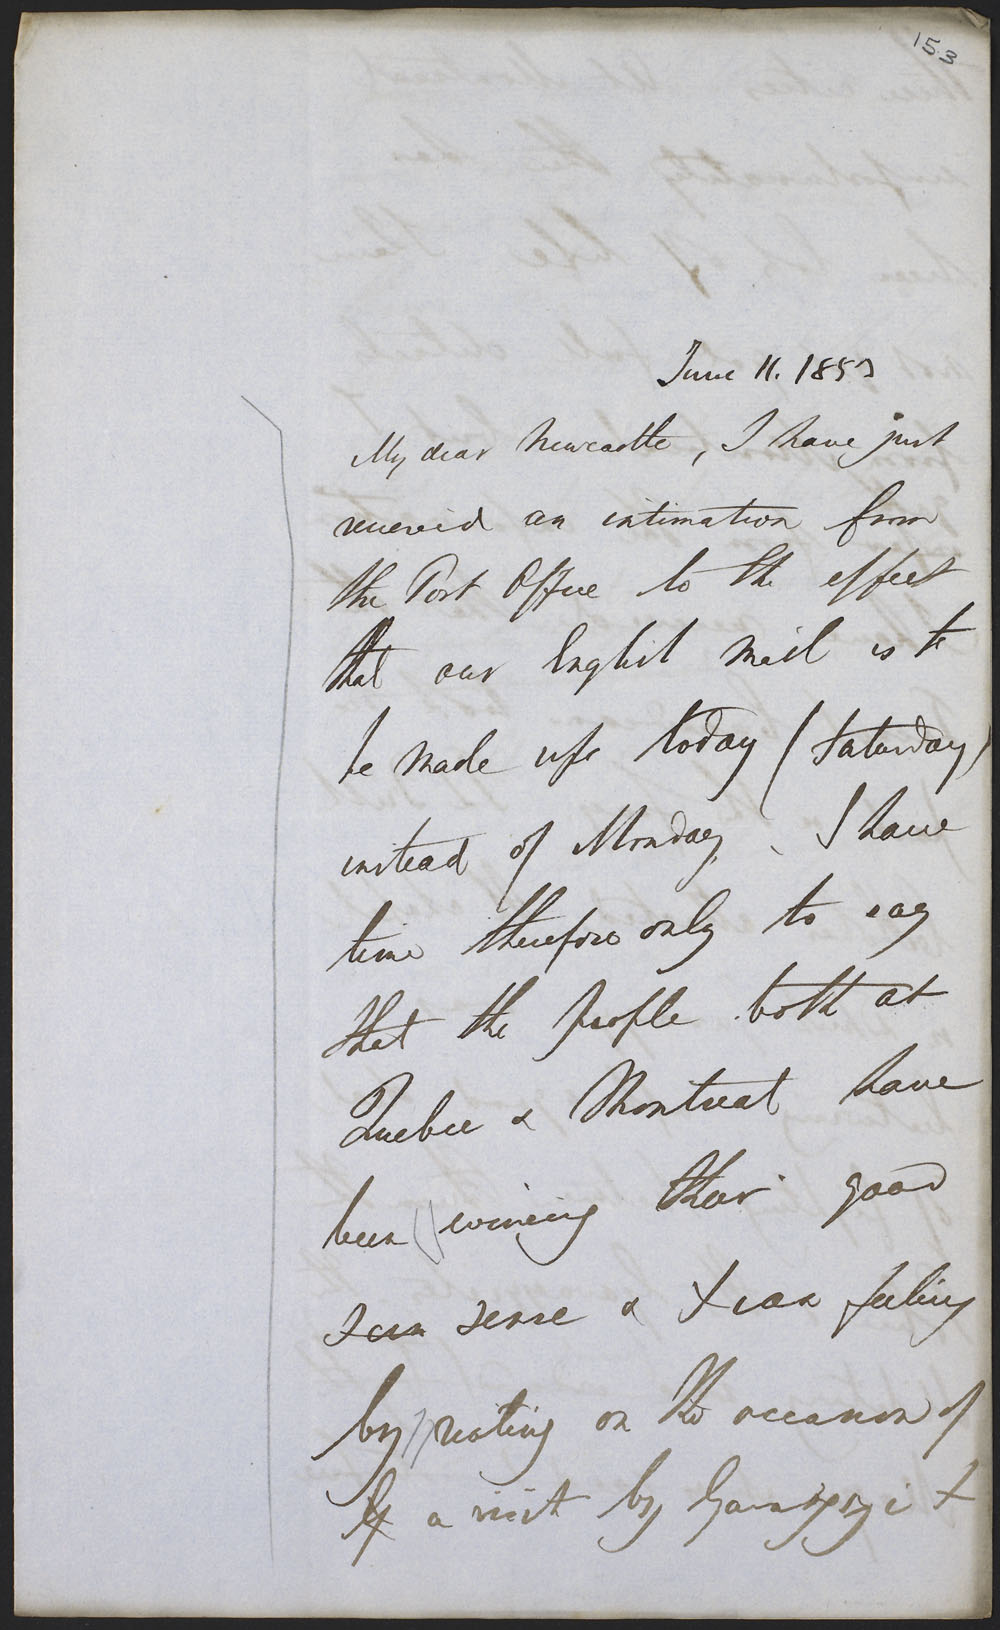 153
June 11. 1853
My dear Newcastle, I have just
received an intimation from
the Post Office to the effect
that our English Mail is to
be made up today (Saturday)
instead of Monday. I have
time therefore only to say
that the people both at
Quebec & Montreal have
been evincing their good
sense & feeling
by rioting on the occasion of
a visit by Gavazzi